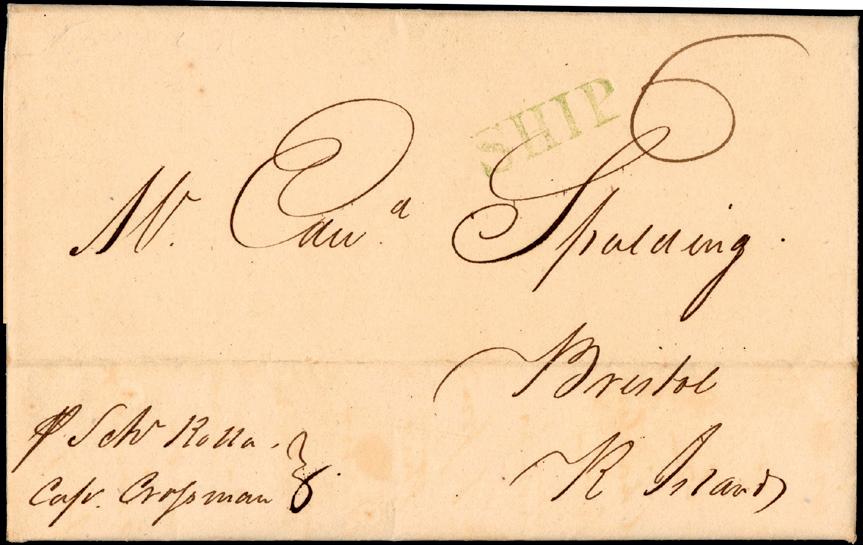 SHIP 6
Mr. Edwd. Spalding.
Bristol
R Island
⅌ Schr Rolla.
Capt. Crossman